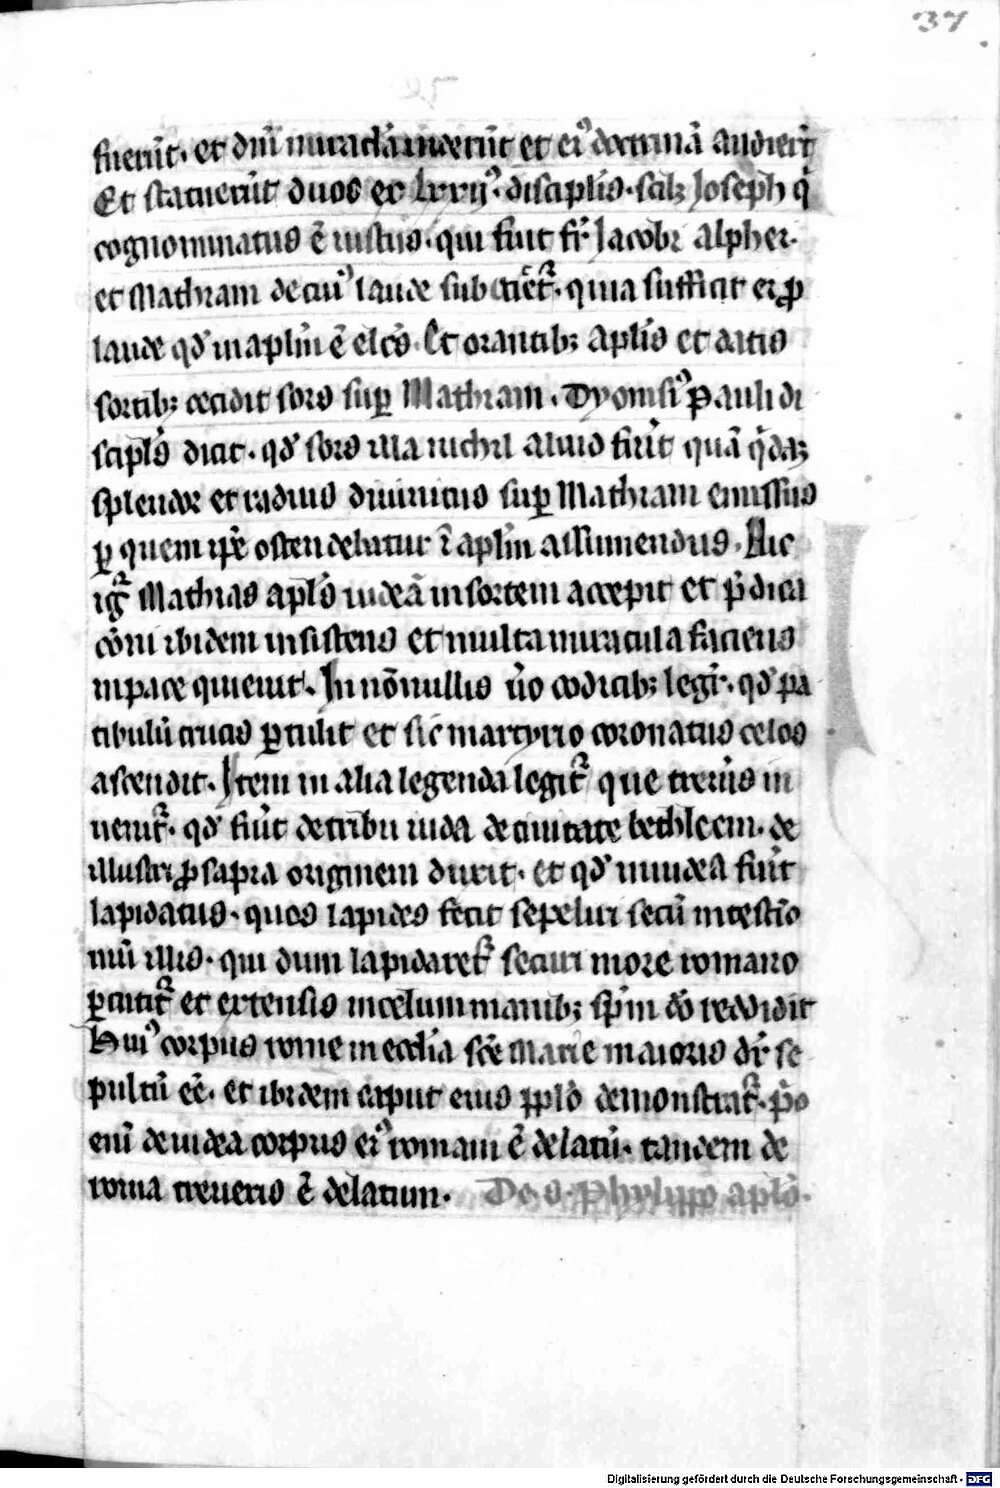 37
fuerūt. et dnī miracla uiderūt et ei⁹ doctrinā audierūt
Et statuerūt duos ex lxxij⁹ disciplis. scilꝫ Joseph q̇
cognominatus ē iustus. qui fuit fr̄ Jacobi alphei.
et Mathiam de cui⁹ laude subticet᷑. quia sufficit ei ꝓ
laude qd' in aplm̄ ē elcūs. Et orantibꝫ aplis et datis
sortibꝫ cecidit sors suꝑ Mathiam. Dyonisi⁹ Pauli di
scipl̄s dicit. qd' sors illa nichil aliud fuit quā q̇daꝫ
splendor et radius diuinitus suꝑ Mathiam emissus
ꝑ quem ip̄e ostendebatur ī aplm̄ assumendus. Hic
igr̄ Mathias apl̄s iudeā in sortem accepit et p̄dica
cōni ibidem insistens et multa miracula faciens
in pace quieuit. In nōnullis ūo codicibꝫ legit᷑. qd' pa
tibulū crucis ꝑtulit et sic martyrio coronatus celos
ascendit. Item in alia legenda legit᷑ que treuīs in
uenit᷑. qd' fuīt de tribu iuda de ciuitate bethleem. de
illustri ꝓsapia originem duxit. et qd' in iudea fuīt
lapidatus. quos lapides fecit sepeliri secū in testīo
niū illis. qui dum lapidaret᷑ securi more romano
ꝑcutit᷑ et extensis in celum manibꝫ sp̄m dō reddidit
Hui⁹ corpus rome in ecclīa scē Marie maioris dr̄ se
pultū eē. et ibidem caput eius pplō demonstrat᷑. p̄o
enī de iudea corpus ei⁹ romam ē delatū. tandem de
roma treueris ē delatum. De s. Phylippo aplō.
Digitalisierung gefördert durch die Deutsche Forschungsgemeinschaft - DFG